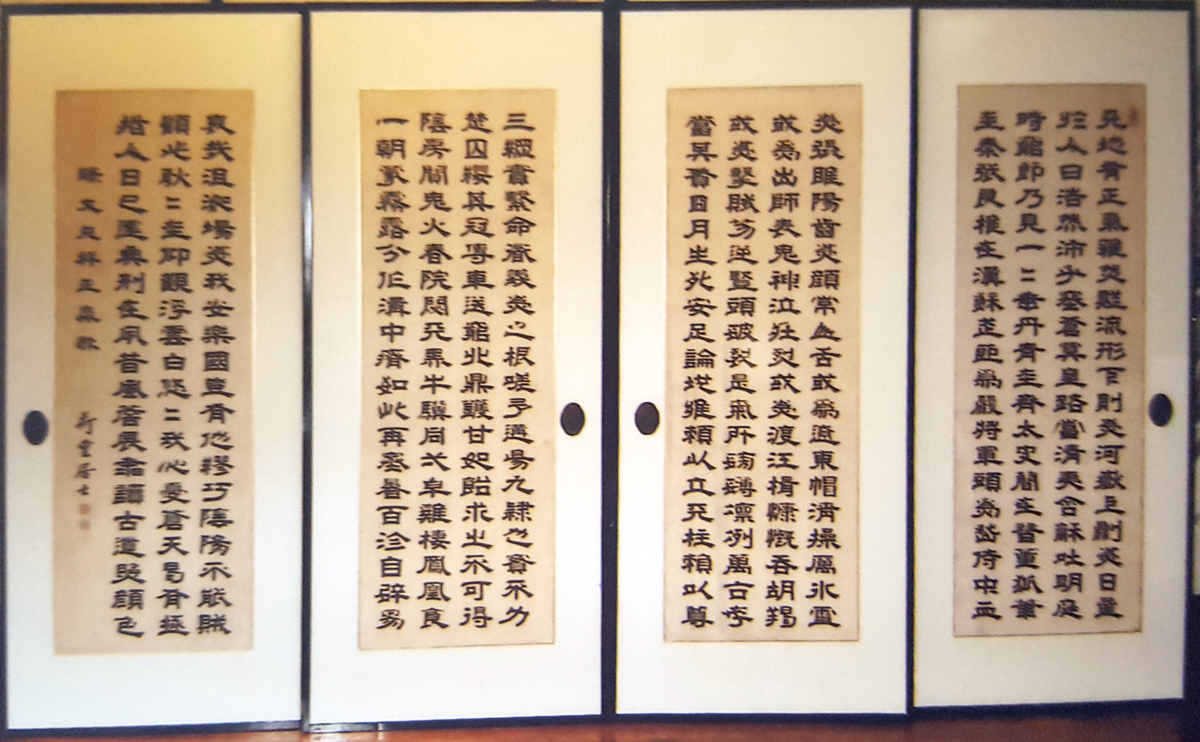 天地有正氣雜然賦流形下則爲河嶽上則爲日星
於人曰浩然沛乎塞蒼冥皇路當清夷含龢吐明庭
時窮節乃見一〻垂丹青在齊太史簡在晉董狐筆
在秦張良椎在漢蘇武節爲嚴將軍頭爲嵇侍中血
爲張睢陽齒爲顏常山舌或爲遼東帽清操厲冰雪
或爲出師表鬼神泣壯烈或爲渡江楫慷慨吞胡羯
或爲擊賊笏逆豎頭破裂是氣所磅礴凜冽萬古存
當其貫日月生死安足論地維賴以立天柱賴以尊
三綱實繫命道義爲之根嗟予遘陽九隸也實不力
楚囚纓其冠傳車送窮北鼎鑊甘如飴求之不可得
陰房闃鬼火春院閟天黑牛驥同一皁雞棲鳳凰食
一朝蒙霧露分作溝中瘠如此再寒暑百沴自辟易
哀哉沮洳場爲我安樂國豈有他繆巧陰陽不能賊
顧此耿〻在仰視浮雲白悠〻我心憂蒼天曷有極
哲人日已遠典刑在夙昔風簷展書讀古道照顏色
文天祥正氣歌
居士